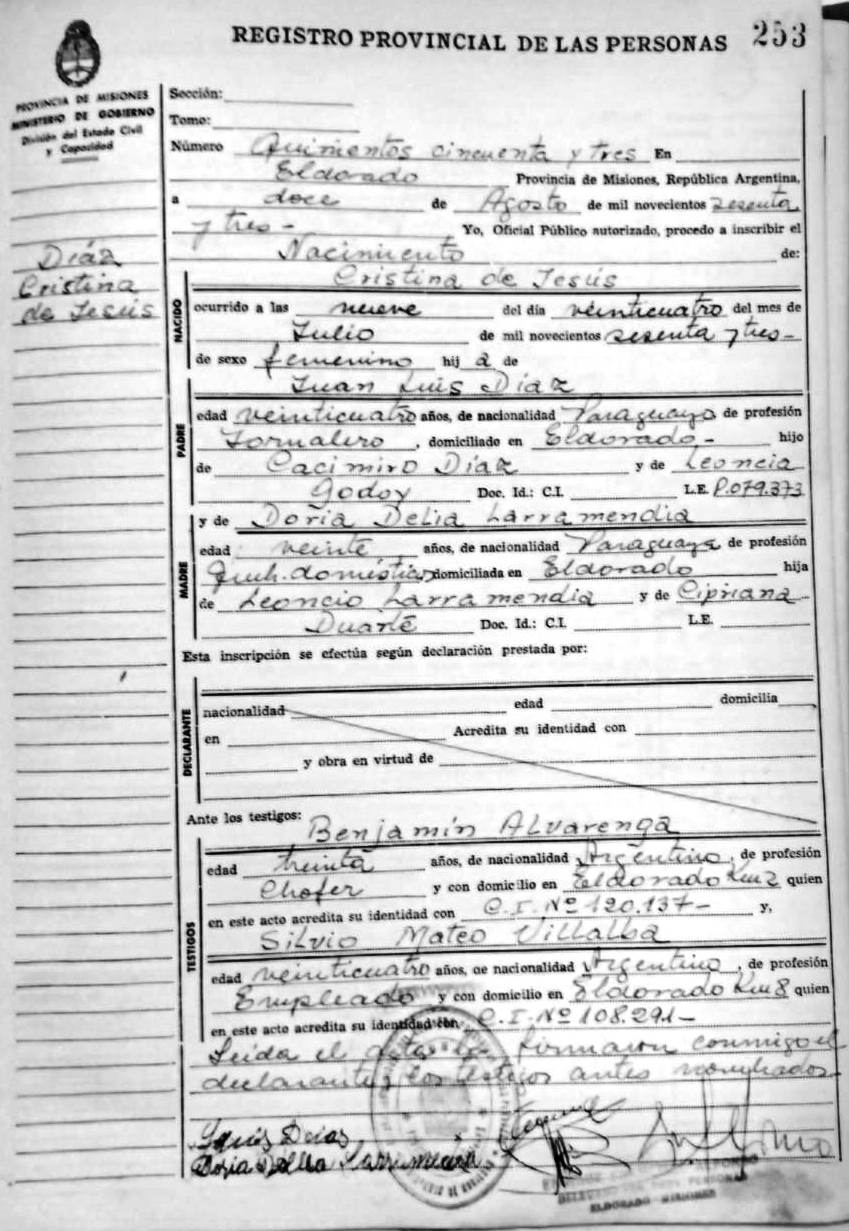 REGISTRO PROVINCIAL DE LAS PERSONAS 253
PROVINCIA DE MISIONES
MINISTERIO DE GOBIERNO
División del Estado Civil
y Capacidad
Díaz
Cristina
de Jesús
Sección:
Tomo:
Número Quinientos cincuenta y tres En
Eldorado Provincia de Misiones, República Argentina,
a doce de Agosto de mil novecientos sesenta
y tres - Yo, Oficial Público autorizado, procedo a inscribir el
Nacimiento de:
NACIDO
Cristina de Jesús
ocurrido a las nueve del día veinticuatro del mes de
Julio de mil novecientos sesenta y tres -
de sexo femenino hij a de
PADRE
Juan Luis Díaz
edad veinticuatro años, de nacionalidad Paraguayo de profesión
Jornalero, domiciliado en Eldorado - hijo
de Cacimiro Díaz y de Leoncia
Godoy Doc. Id.: C.I. L.E. P.079.373
MADRE
y de Doria Delia Larramendia
edad veinte años, de nacionalidad Paraguaya de profesión
domiciliada en Eldorado hija
de Leoncio Larramendia y de Cipriana
Duarte Doc. Id.: C.I. L.E.
Esta inscripción se efectúa según declaración prestada por:
DECLARANTE
nacionalidad edad domicilia
en Acredita su identidad con
y obra en virtud de
Ante los testigos: Benjamín Alvarenga
TESTIGOS
edad treinta años, de nacionalidad Argentino, de profesión
Chofer y con domicilio en Eldorado Km 2 quien
en este acto acredita su identidad con C.I. Nº 120.137 - y,
Silvio Mateo Villalba
edad veinticuatro años, de nacionalidad Argentino, de profesión
Empleado y con domicilio en Eldorado Km 8 quien
en este acto acredita su identidad con C.I. Nº 108.291 -
Leída el acta la firmaron conmigo el
declarante y los testigos antes nombrados
Luis Dias
Doria Delia Larramendia
ELDORADO - MISIONES